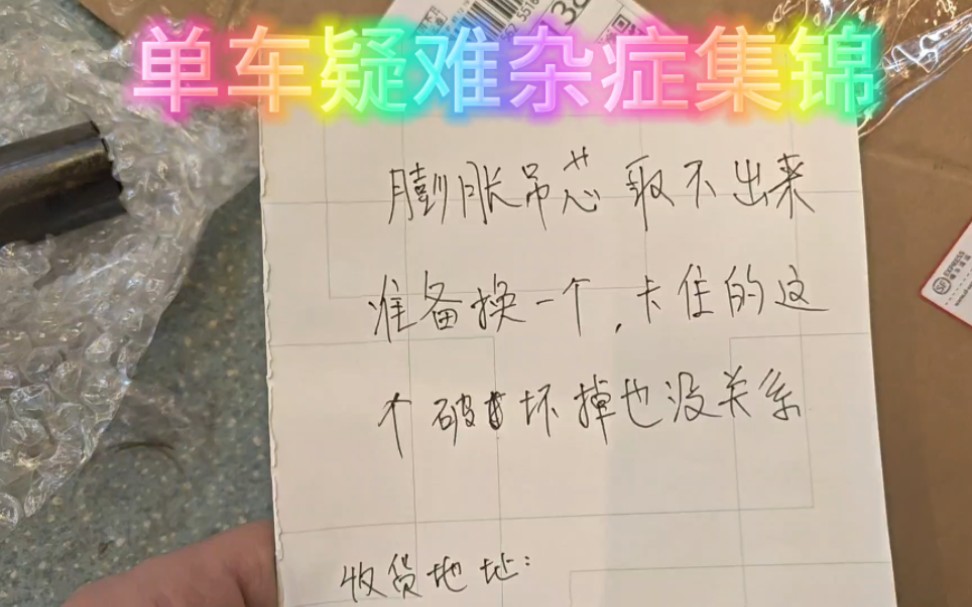 单车疑难杂症集锦
膨胀吊芯取不出来
准备换一个,卡住的这
个破坏掉也没关系
收货地址: